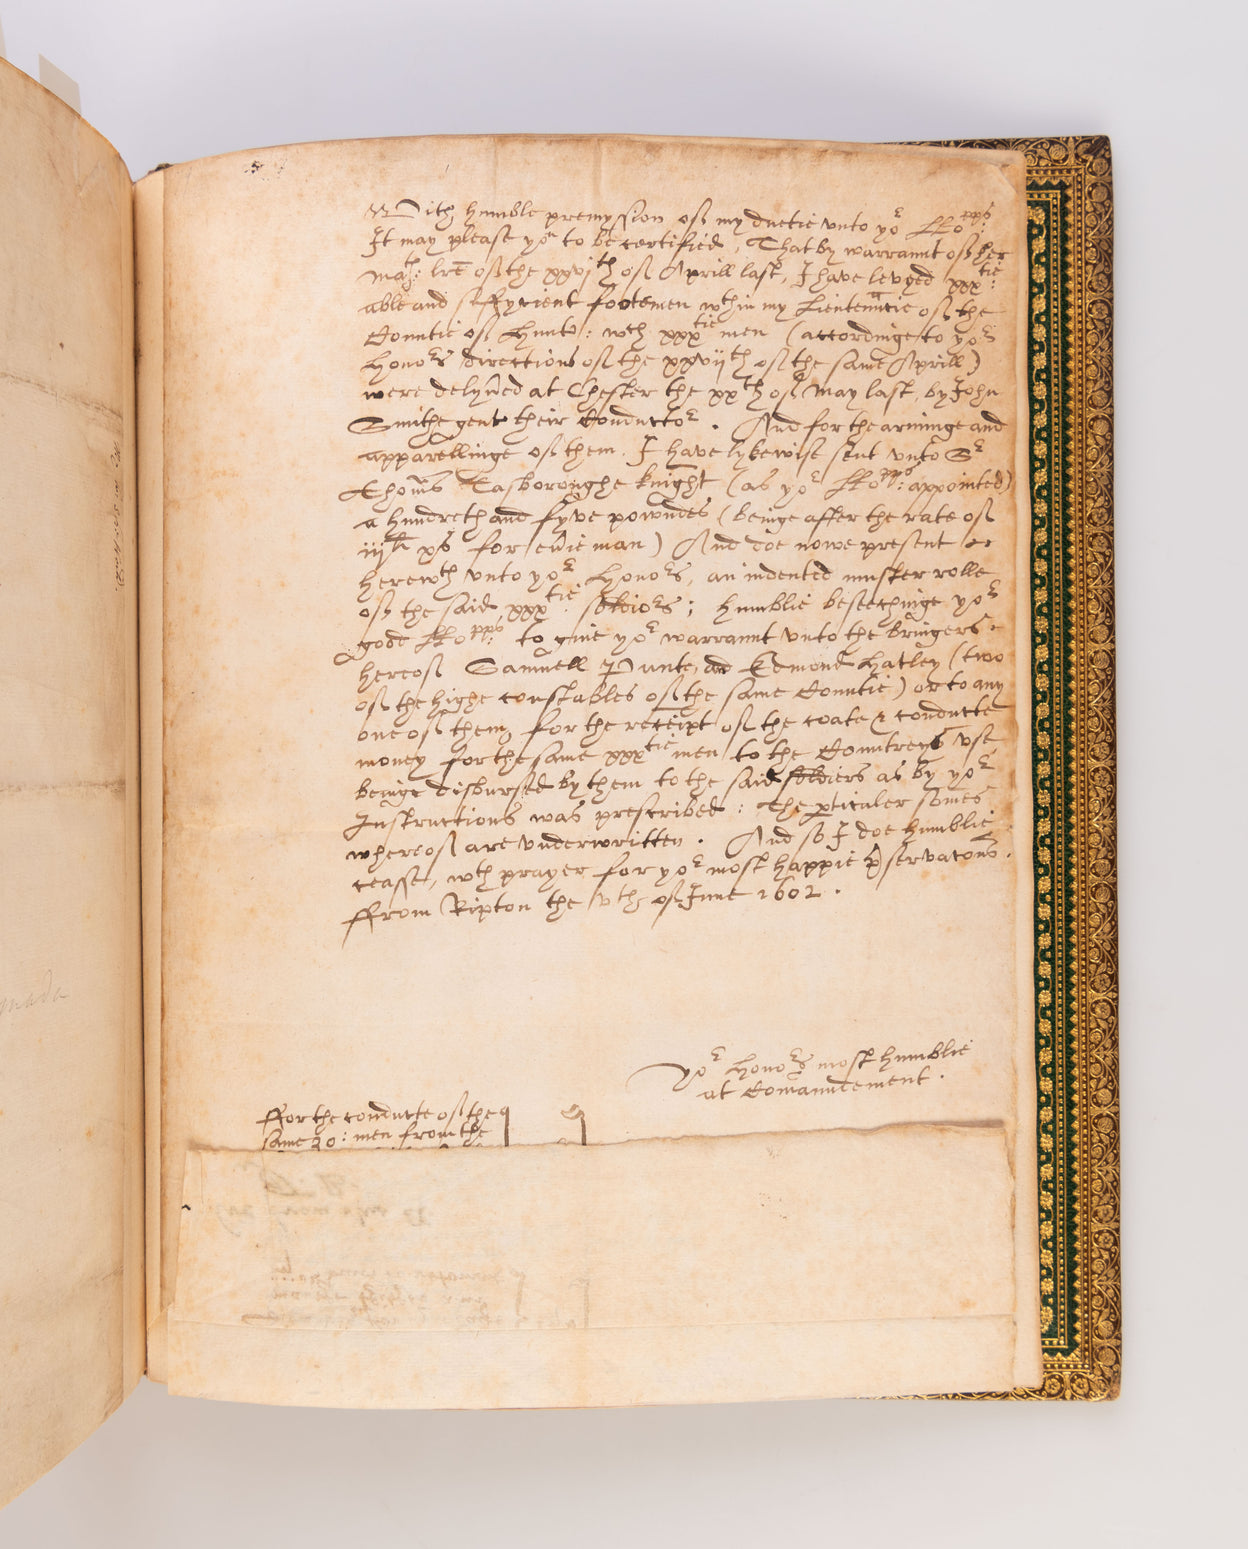 With humble premyssion of my duetie unto yor LLopps:
It may please you to be certified, That by warrannt of her
Mats: lres of the xxvjth of Aprill last, I have levyed xxxtie:
able and suffycient footemen wthin my Lieutennntie of the
Countie of Hunt: wch xxxtie men (accordinge to yor
Honors directions of the xxvijth of the same Aprill)
were delyvred at Chester the xxth of May last, by John
Smithe gent their Conductor. And for the arminge and
apparellinge of them, I have lykewise sent unto Sr
Thoms Tasboroughe knight (as yor LLopps: appointed)
a hundreth and fyve powndes (beinge after the rate of
iijli xs for evrie man) And doe nowe present
herewth unto yor Honors, an indented muster rolle
of the said xxxtie: soldiors; humblie beseechinge yor
gode LLopps: to give yor warrannt unto the bringers
hereof Samuell Punte, and Edmond Hatley (two
of the highe constables of the same Countie) or to any
one of them, for the receipt of the coate & conducte
money for the same xxxtie men to the Countreys use
beinge disbursed by them to the said soldiers as by yor
Instructions was prescribed: The pticuler somes
whereof are underwritten. And so I doe humblie
cease, wth prayer for yor most happie pservacons.
ffrom Ripton the vth of June 1602.
Yor Honors most humblie
at Comanndement.
ffor the conducte of the
same 30: men from the